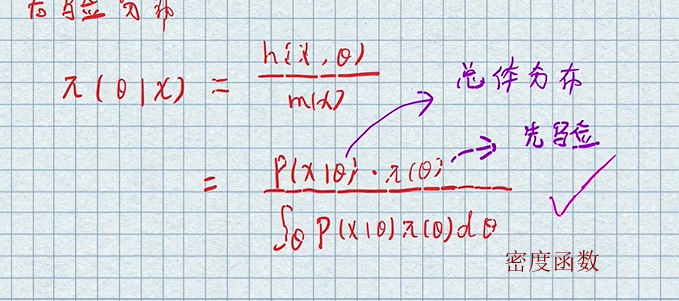 后验分布
π(θ|x) = h(x, θ) / m(x)
总体分布
先验
= P(x|θ)·π(θ) / ∫θ P(x|θ)π(θ)dθ
密度函数